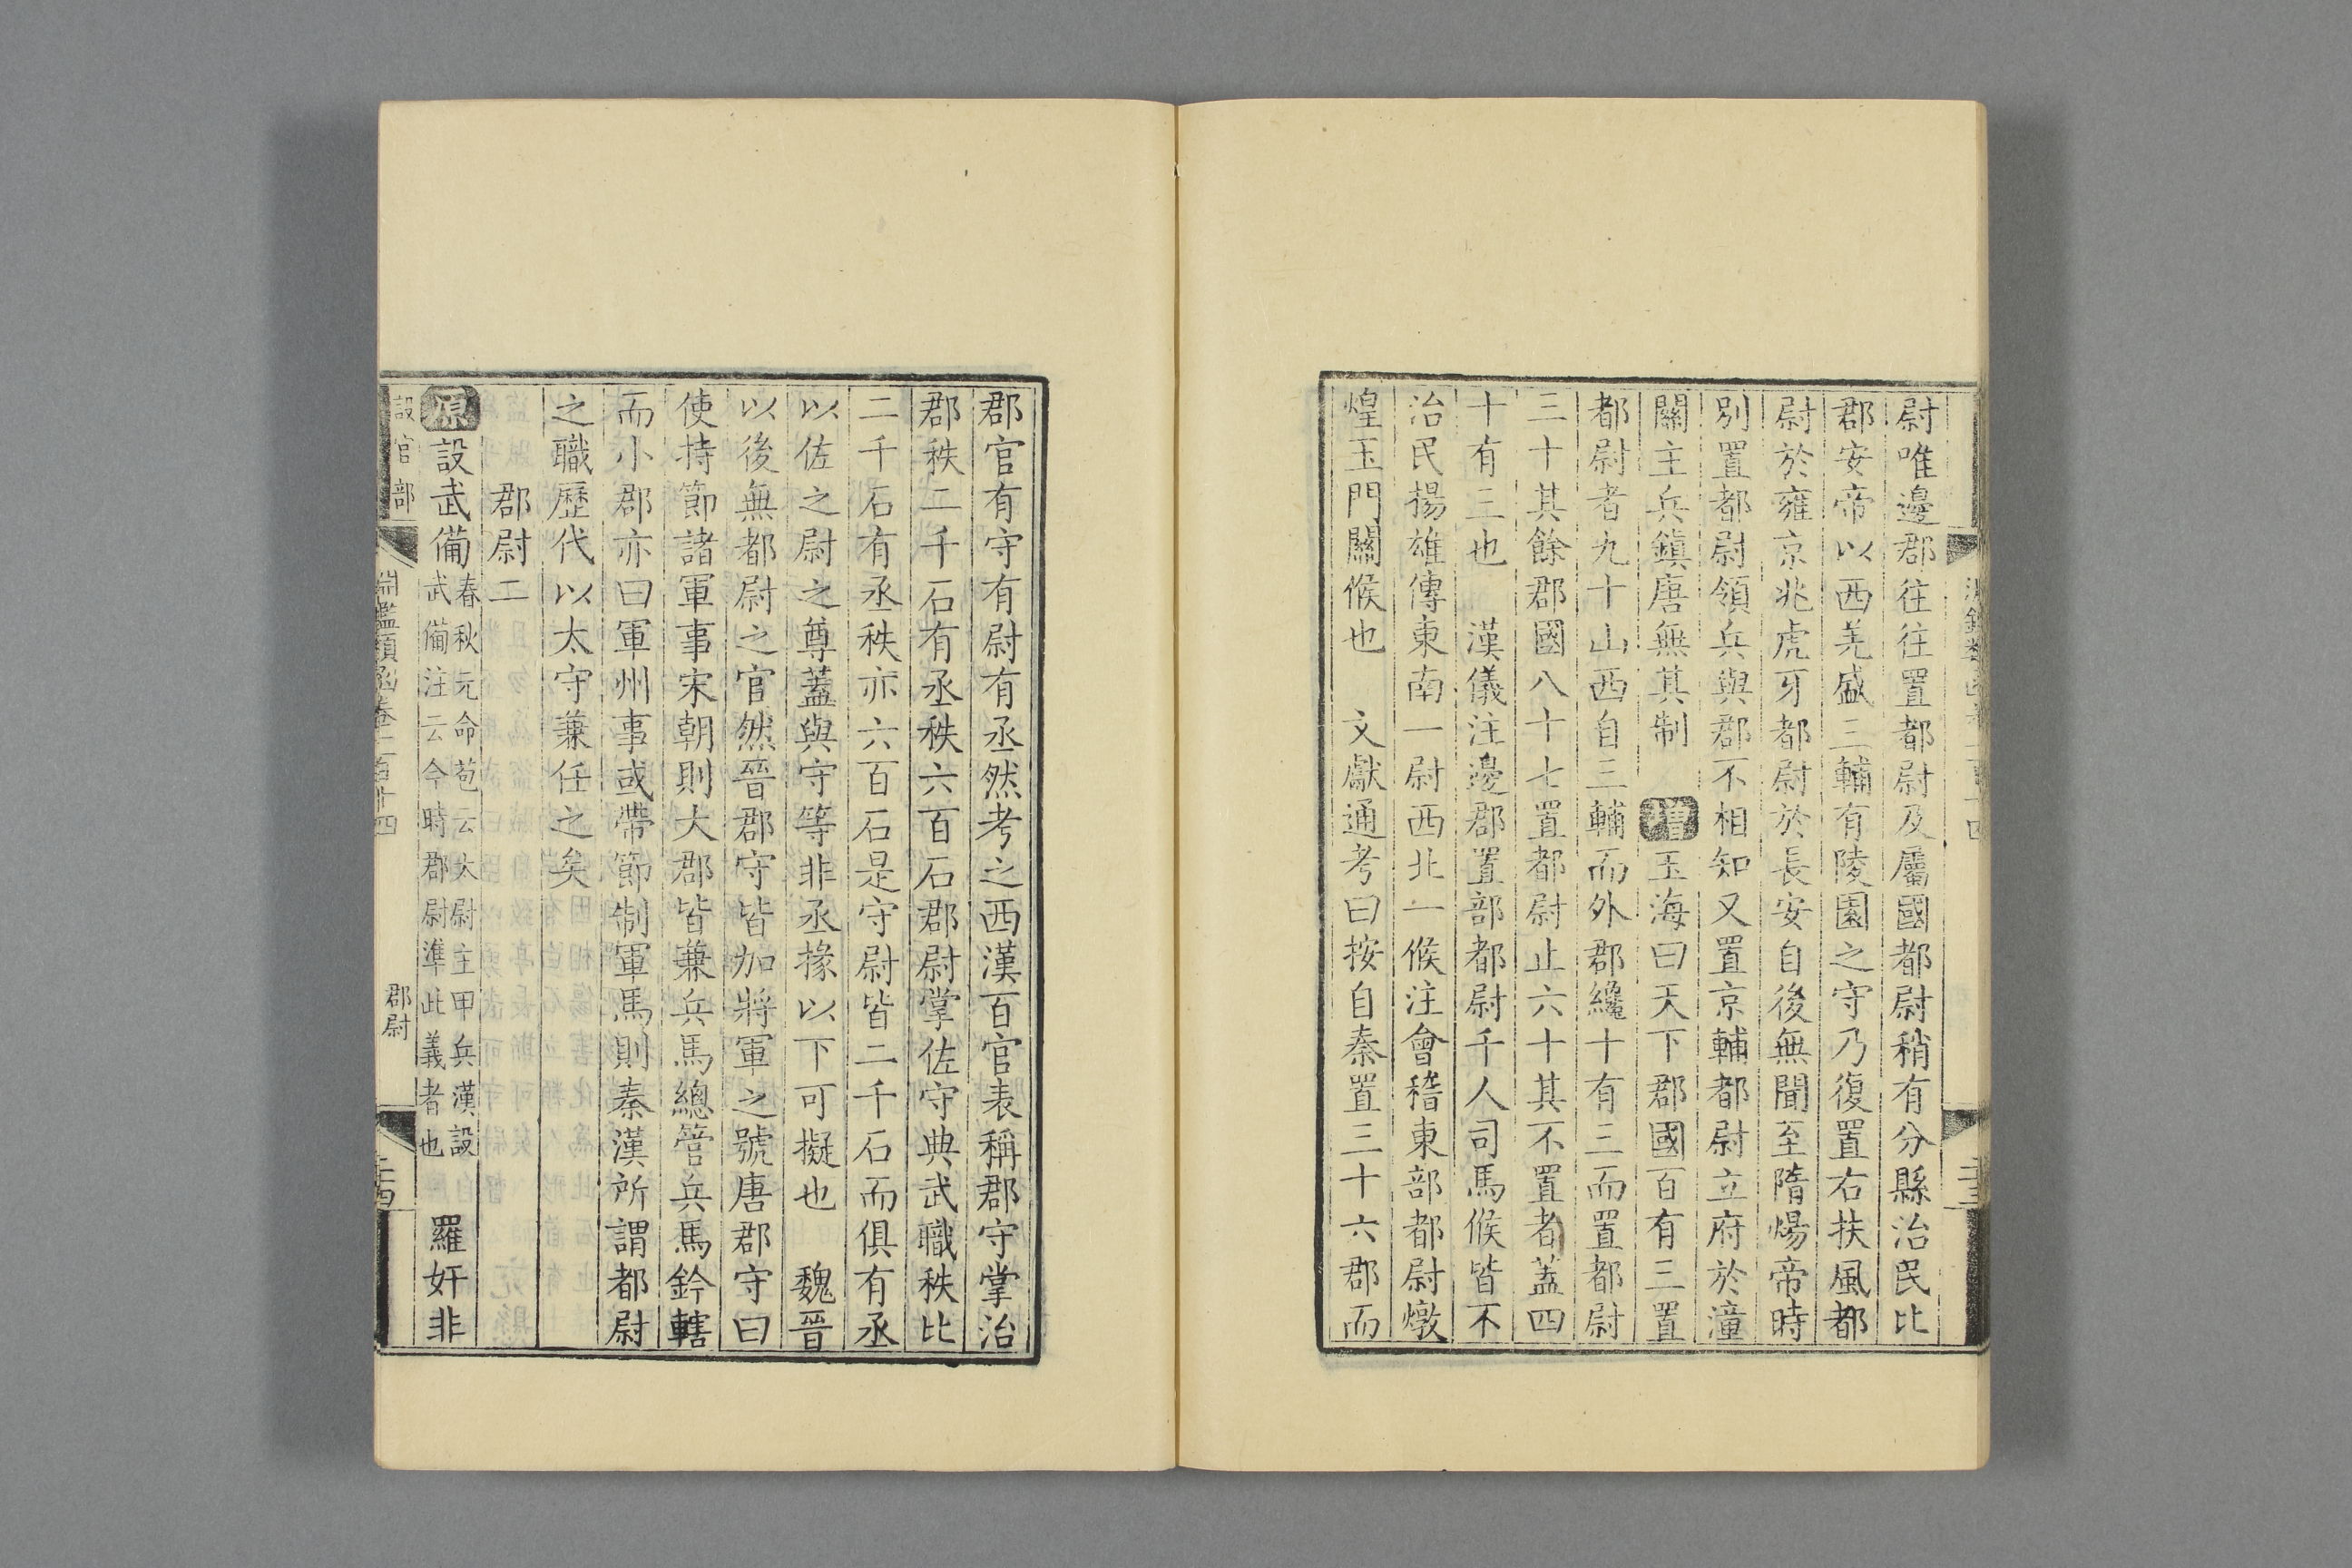 尉唯邊郡往往置都尉及屬國都尉稍有分縣治民比
郡安帝以西羌盛三輔有陵園之守乃復置右扶風都
尉於雍京兆虎牙都尉於長安自後無聞至隋煬帝時
別置都尉領兵與郡不相知又置京輔都尉立府於潼
關主兵鎮唐無其制 增 玉海曰天下郡國百有三置
都尉者九十山西自三輔而外郡纔十有三而置都尉
三十其餘郡國八十七置都尉止六十其不置者蓋四
十有三也 漢儀注邊郡置部都尉千人司馬候皆不
治民揚雄傳東南一尉西北一候注會稽東部都尉燉
煌玉門關候也 文獻通考曰按自秦置三十六郡而
郡官有守有尉有丞然考之西漢百官表稱郡守掌治
郡秩二千石有丞秩六百石郡尉掌佐守典武職秩比
二千石有丞秩亦六百石是守尉皆二千石而俱有丞
以佐之尉之尊蓋與守等非丞掾以下可擬也 魏晉
以後無都尉之官然晉郡守皆加將軍之號唐郡守曰
使持節諸軍事宋朝則大郡皆兼兵馬總管兵馬鈐轄
而小郡亦曰軍州事或帶節制軍馬則秦漢所謂都尉
之職歷代以太守兼任之矣
郡尉二
原 設武備 春秋元命苞云大尉主甲兵漢設
武備注云今時郡尉準此義者也 羅奸非
設官部 淵鑑類函卷一百十四 郡尉